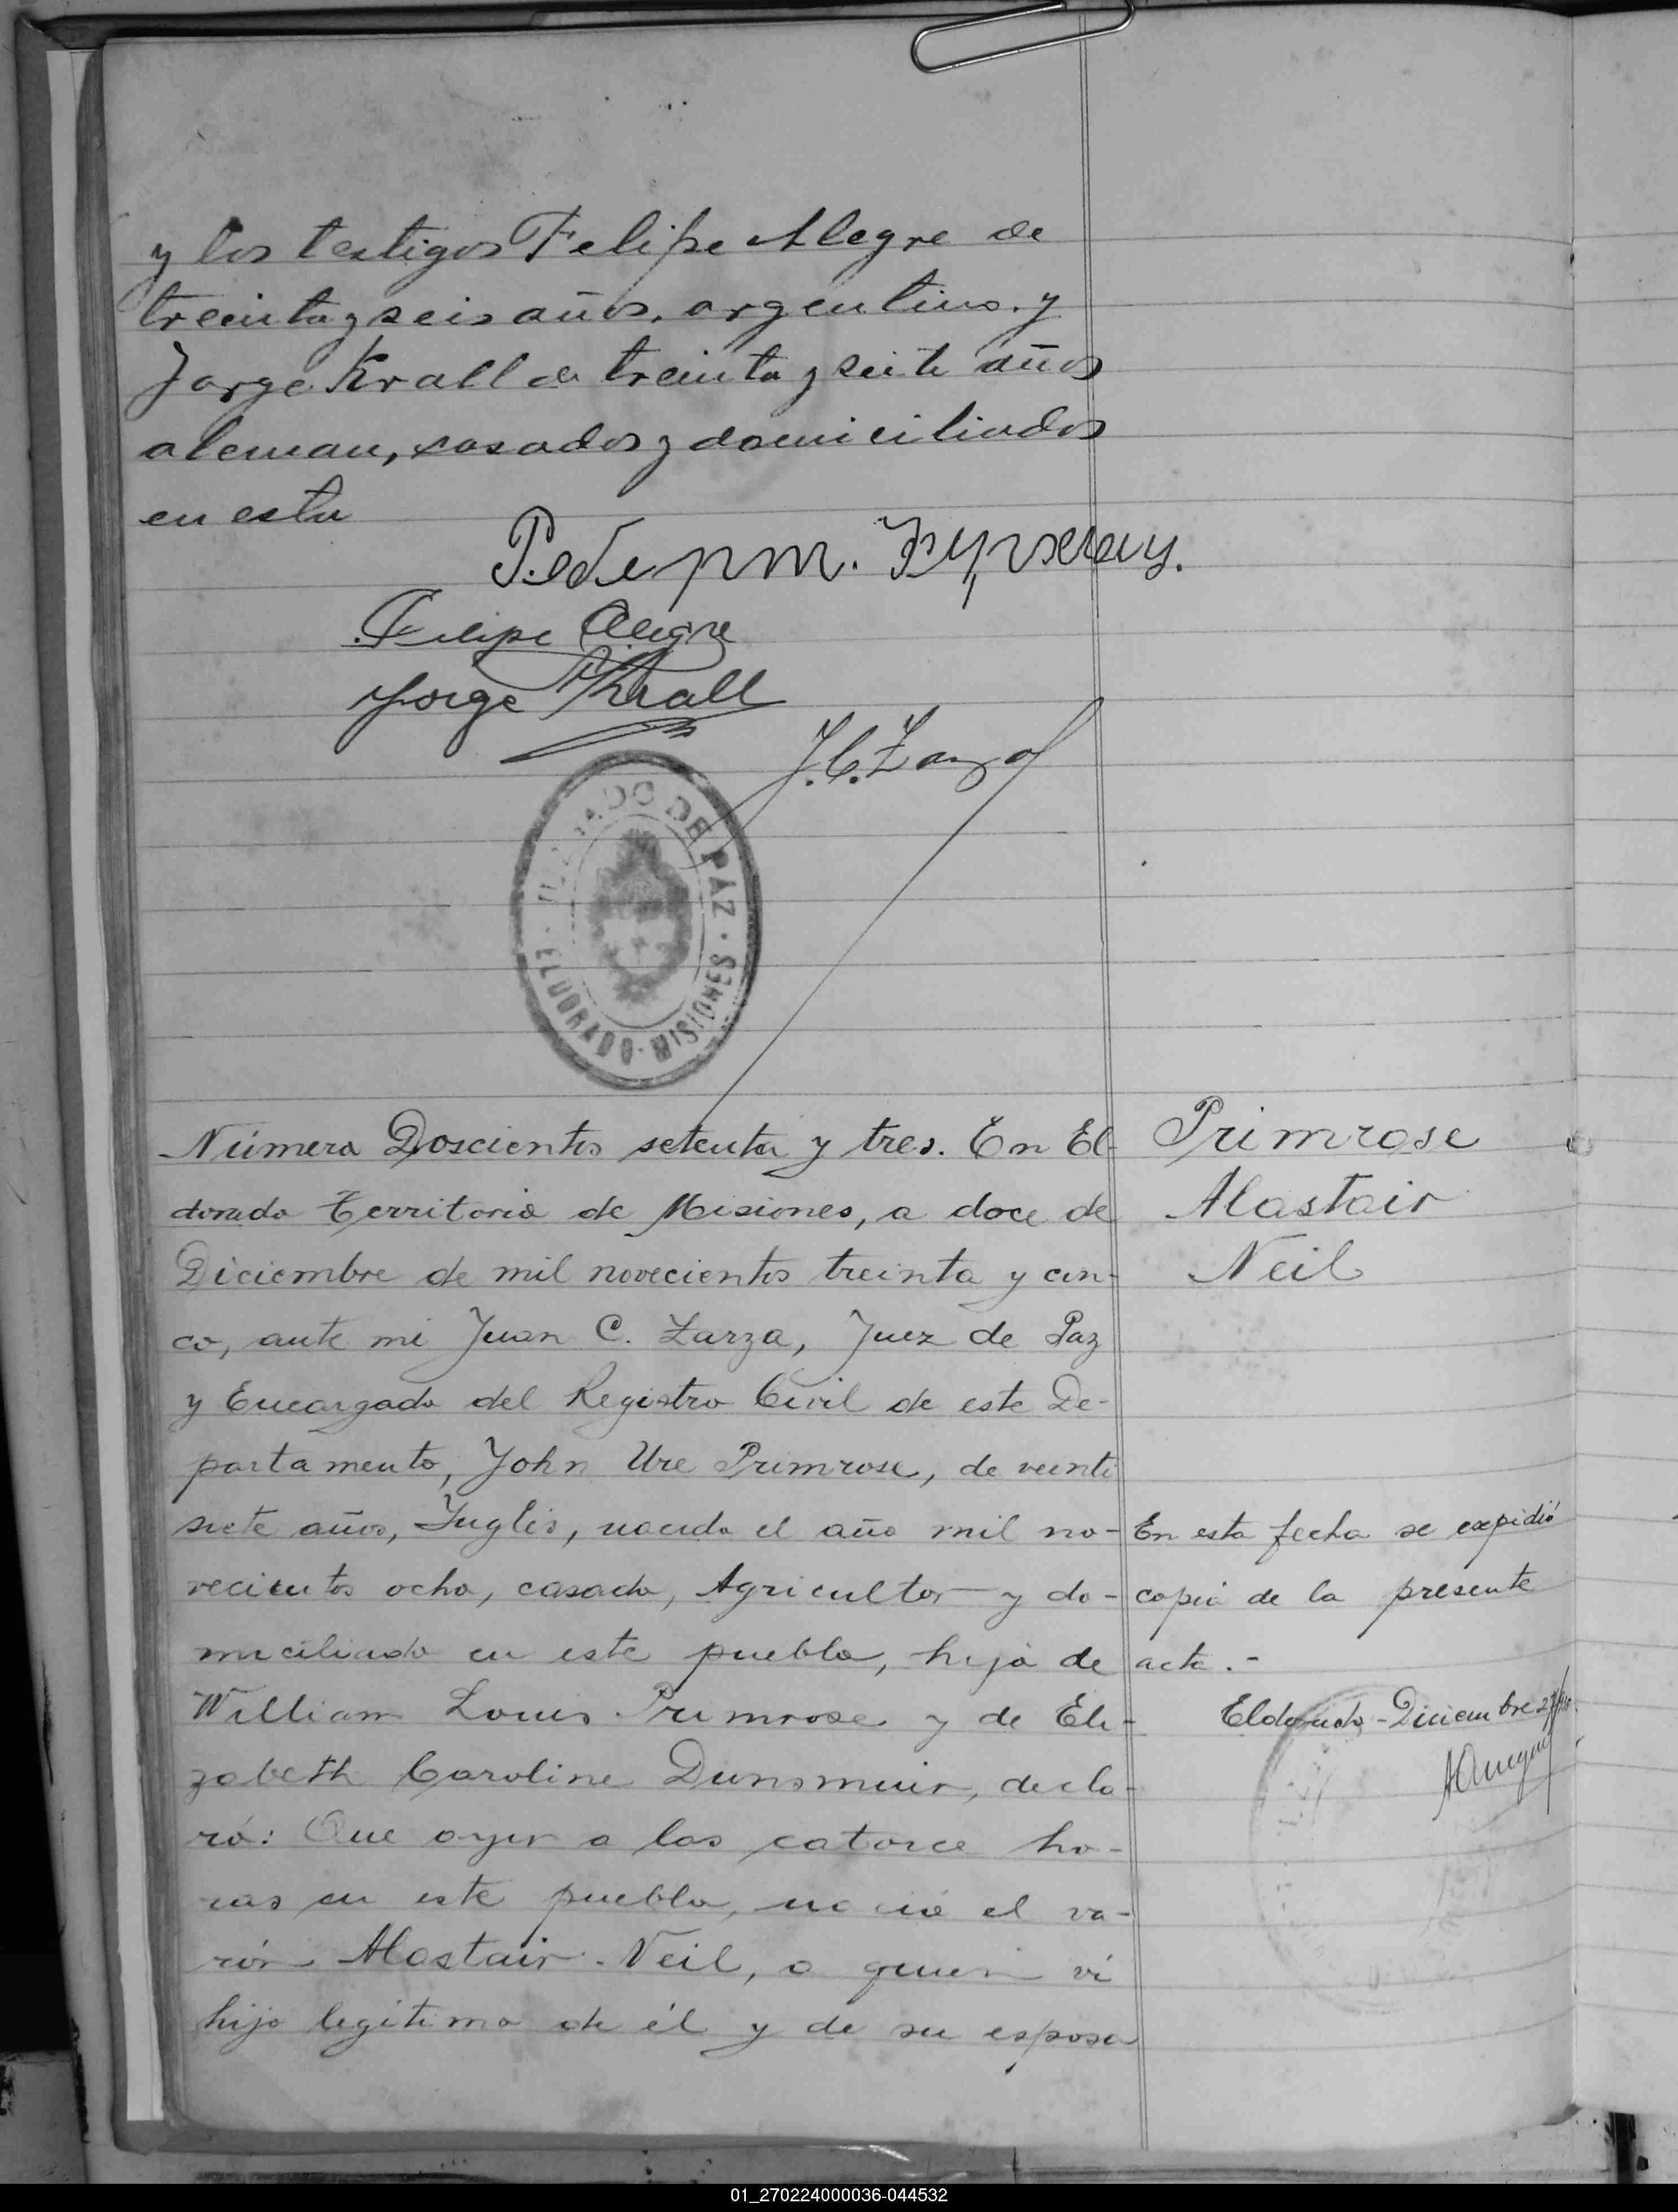 y los testigos Felipe Alegre de
treinta y seis años, argentino. y
Jorge Krall de treinta y siete años
aleman, casados y domiciliados
en esta
Felipe Alegre
Jorge Krall
J. C. Zarza
JUZGADO DE PAZ · ELDORADO · MISIONES
Número Doscientos setenta y tres. En El-
dorado Territorio de Misiones, a doce de
Diciembre de mil novecientos treinta y cin-
co, ante mi Juan C. Zarza, Juez de Paz
y Encargado del Registro Civil de este De-
partamento, John Ure Primrose, de veinti
siete años, Inglés, nacido el año mil no-
vecientos ocho, casado, Agricultor y do-
miciliado en este pueblo, hijo de
William Louis Primrose y de Eli-
zabeth Caroline Dunsmuir, decla-
ró: Que ayer a las catorce ho-
ras en este pueblo, nació el va-
rón Alastair Neil, a quien ví
hijo legítimo de él y de su esposa
Primrose
Alastair
Neil
En esta fecha se expidió
copia de la presente
acta.-
Eldorado - Diciembre
01_270224000036-044532